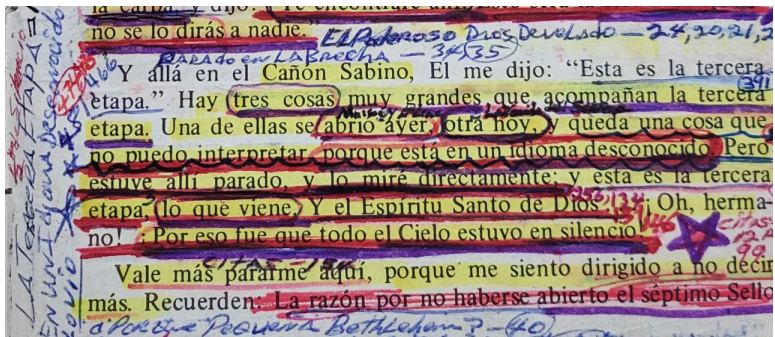 no se lo dirás a nadie." El Poderoso Dios Develado — 24,20,21,2
PARADO en LA BRECHA — 34,35
Y allá en el Cañón Sabino, El me dijo: "Esta es la tercera
391
etapa." Hay tres cosas muy grandes que acompañan la tercera
etapa. Una de ellas se abrió ayer, otra hoy, y queda una cosa que
no puedo interpretar, porque está en un idioma desconocido. Pero
estuve allí parado, y lo miré directamente; y esta es la tercera
etapa, lo que viene, Y el Espíritu Santo de Dios... ¡Oh, herma-
no! ¡Por eso fue que todo el Cielo estuvo en silencio!
citas
99
Vale más pararme aquí, porque me siento dirigido a no decir
más. Recuerden: La razón por no haberse abierto el séptimo Sello
¿Porque Pequeña Bethlehem? — 40
LA Tercera ETAPA =
EN UN IDIOMA Desconocido
LO VIO